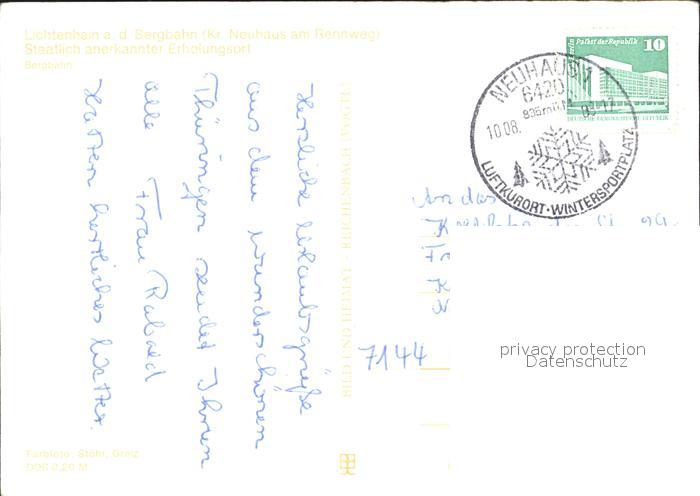 Lichtenhain a. d. Bergbahn (Kr. Neuhaus am Rennweg)
Staatlich anerkannter Erholungsort
Bergbahn
Berlin Palast der Republik
10
DEUTSCHE DEMOKRATISCHE REPUBLIK
NEUHAUS 1
6420
10.08.
LUFTKURORT · WINTERSPORTPLATZ
Herzliche Urlaubsgrüße
aus dem wunderschönen
Thüringen sendet Ihnen
alle Frau Rabald
Hatten herrliches Wetter.
BILD UND HEIMAT REICHENBACH
An das
7144
privacy protection
Datenschutz
Farbfoto: Stöhr, Greiz
DDR 0,20 M